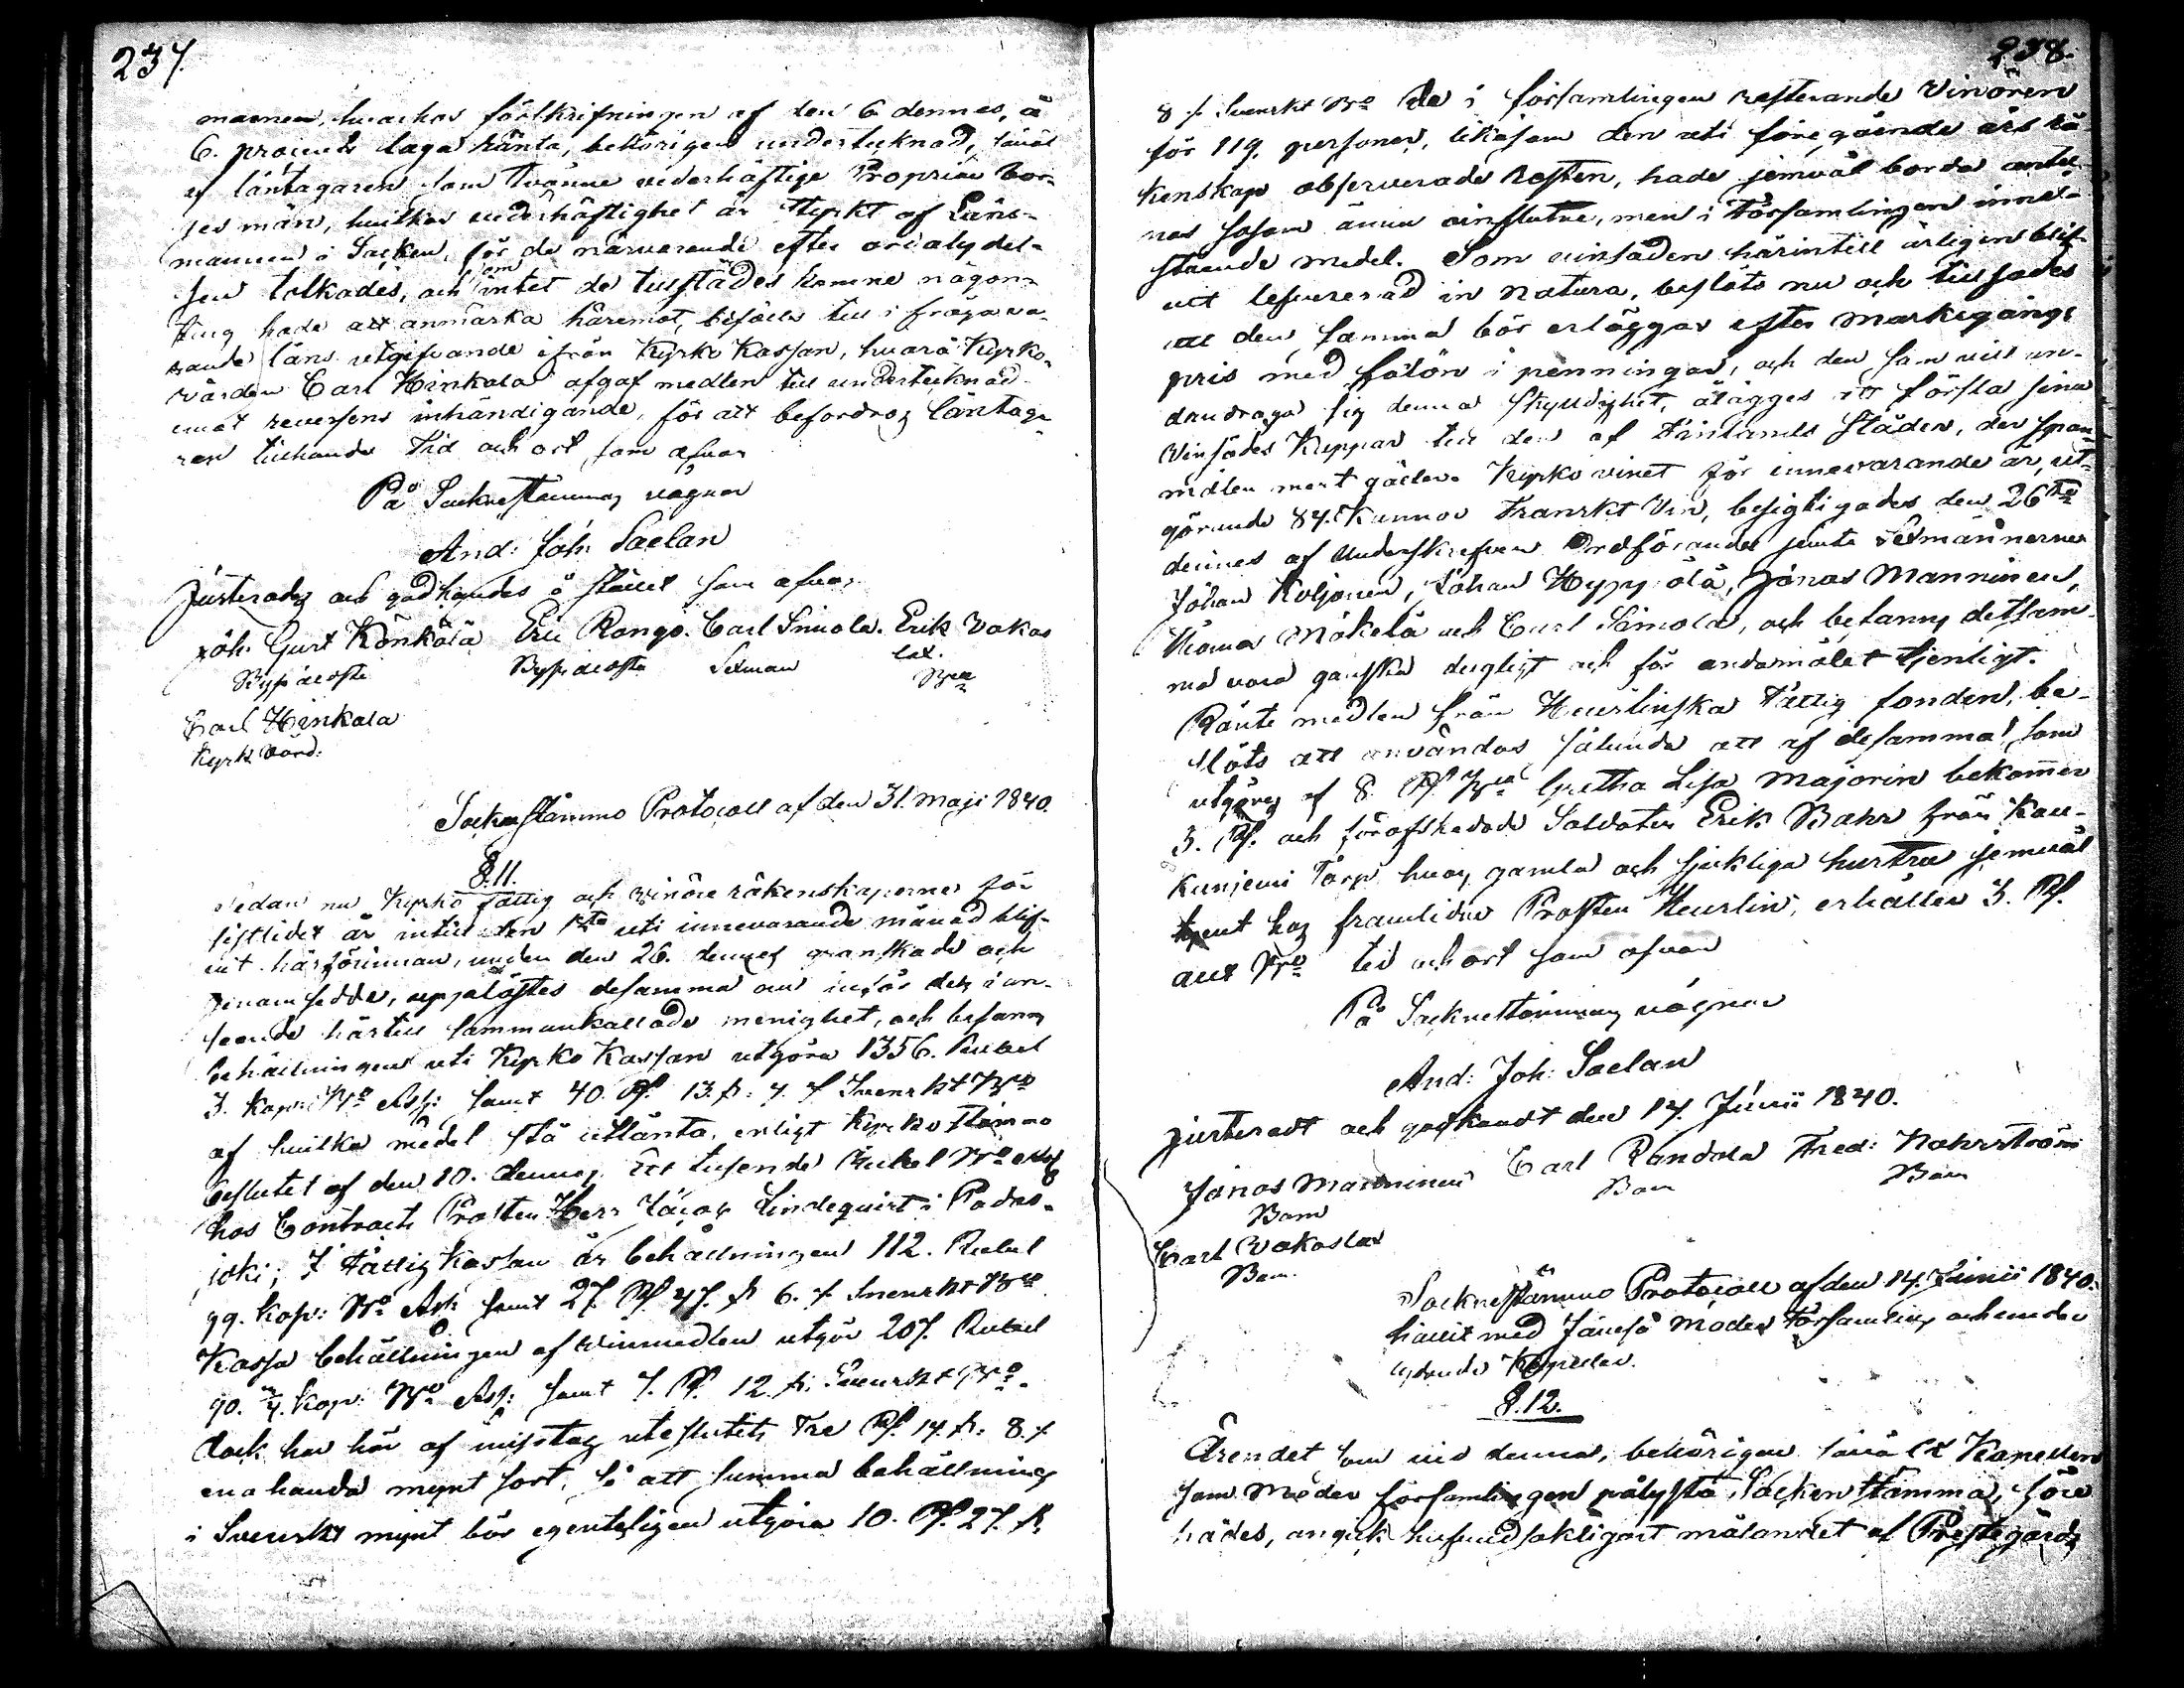 237.
mannen, hvarhos förskrifningen af den 6 dennes, à
6. procents laga ränta, behörigen undertecknad, såväl
af låntagaren som tvänne vederhäftige Proprieu Bor-
ges män, hvilkas vederhäftighet är styrkt af Läns-
mannen i Socken, för de närvarande efter ordalydel-
sen tolkades, och om intet de tillstädes komne någon-
ting hade att anmärka häremot, bifölls till i fråga va-
rande låns utgifvande ifrån Kyrko Kassan, hvarå Kyrko-
värden Carl Hinkala afgaf medlen till undertecknad
emot reversens inhändigande, för att befordras låntaga-
ren tillhanda Tid och ort som ofvan
På Sockne stämmans vägnar
And: Joh: Saelan
Justerades och godkändes å stället som ofvan
Joh. Gust Könkölä Eric Rango. Carl Simola. Erik Vakas
Carl Hinkala
Kyrk Värd:
Sockne stämmo Protocoll af den 31. Maji 1840.
§.11.
Sedan nu Kyrko fattig och vinöre räkenskaperne för
sistlidet år intill den 1sta uti innevarande månad blif-
vit härförinnan, under den 26. dennes granskade och
genomsedde, upplästes desamma nu inför den i an-
seende härtill sammankallade menighet, och befanns
behållningen uti Kyrko Kassan utgöra 1356. Rubel
3. Kop: Bco Ass: samt 40. Rd. 13. s. 4. r Svenskt Bco
af hvilka medel stå utlånta, enligt Kyrko stämmo
beslutet af den 10. dennes Ett tusende Rubel Bco Ass
hos Contracts Prosten Herr Jacob Lindequist i Padas-
joki; I Fattig Kassan är behållningen 112. Rubel
99. Kop: Bco Ass: samt 27. Rd 47. s 6. r Svenskt Bco
Kassa behållningen af vinmedlen utgör 207. Rubel
90. Kop: Bco Ass: samt 7. Rd. 12. s. Svenskt Bco.
dock har här af misstag uteslutits Tre Rd. 14. s. 8. r
enahanda mynt sort, så att summa behållning
i Svenskt mynt bör egenteligen utgöra 10. Rd. 27. s.
238.
8 r. Svenskt Bco De i församlingen resterande Vinören
för 119. personer, likasom den uti föregående års rä-
kenskap observerade Resten, hade jemväl borda antek-
nas såsom ännu oinflutne, men i Församlingen inne-
stående medel. Som vinsäden härintill årligen blif-
vit lefvererad in natura, beslöts nu och tillsades
att den samma bör erläggas efter Markegångs
pris med fälön i penningar, och den som vill un-
dandraga sig denna skyldighet, ålägges att forsla sina
Vinsädes Kappar till den af Finlands städer, der span-
målen mest gäller. Kyrkovinet för innevarande år, ut-
görande 84. Kannor Franskt Vin, besigtigades den 26te
dennes af Underskrifven Ordförande jemte Sexmännerne
Johan Koljonen, Johan Hyppölä, Jonas Manninen,
Thomas Mäkelä och Carl Simola, och befanns detsam-
ma vara ganska dugligt och för ändamålet tjenligt.
Ränte medlen från Heurlinska Fattig fonden, be-
slöts att användas sålunda att af desamma, som
utgöras af 8. Rd Bco Gretha Lisa Majorin bekommer
3. Rd. och föraf skedade Soldaten Erik Bahr från Kau-
kunjemi Torp hvars gamla och sjukliga hustru jemväl
tjent hos framlidne Prosten Heurlin, erhåller 3. Rd.
allt Bco tid och ort som ofvan
På Sockne stämmans vägnar
And: Joh: Saelan
Justeradt och godkändt den 14. Junii 1840.
Jonas Manninen Carl Randala Fred: Nohrström
Carl Vakas
Sockne stämmo Protocoll af den 14. Junii 1840.
hållit med Jämsä Moder Församling och under
lydande Kapeller.
§.12.
Ärendet som vid denna, behörigen såväl i Kapellen
som Moder församlingen pålysta, Sockenstämma, före
hades, angick hufvudsakligast målandet af Prestegårds